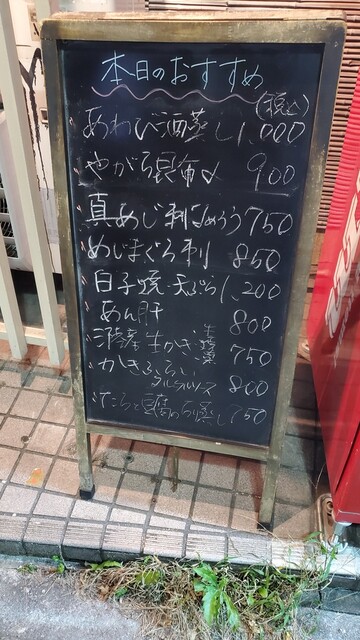 本日のおすすめ
(税込)
あわび酒蒸し 1,000
やがら昆布〆 900
真あじ刺 750
めじまぐろ刺 850
白子焼・天ぷら 1,200
あん肝 800
三陸産生かき 750
かきふらい タルタルソース 800
たらと豆腐の 蒸し 750